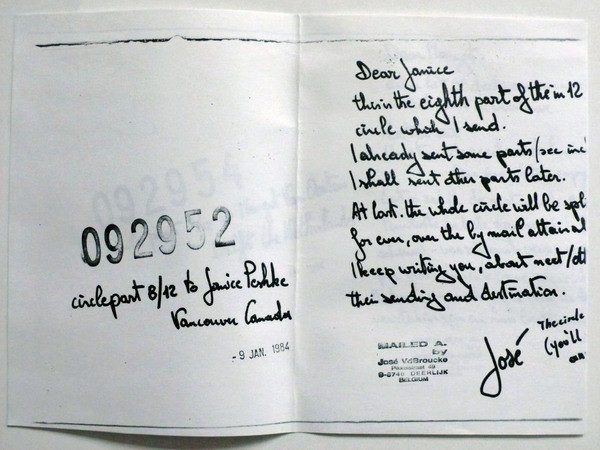 092952
circlepart 8/12 to Janice Peshke
Vancouver Canada
- 9 JAN. 1984
Dear Janice
this is the eighth part of the in 12
circle which I send.
I already sent some parts (see
I shall sent other parts later.
At last. the whole circle will be
for ever, over the by mail
I keep writing you, about next
their sending and destination.
José
The circle
(you'll
MAILED A.
by
José VdBroucke
49
B-8740 DEERLIJK
BELGIUM